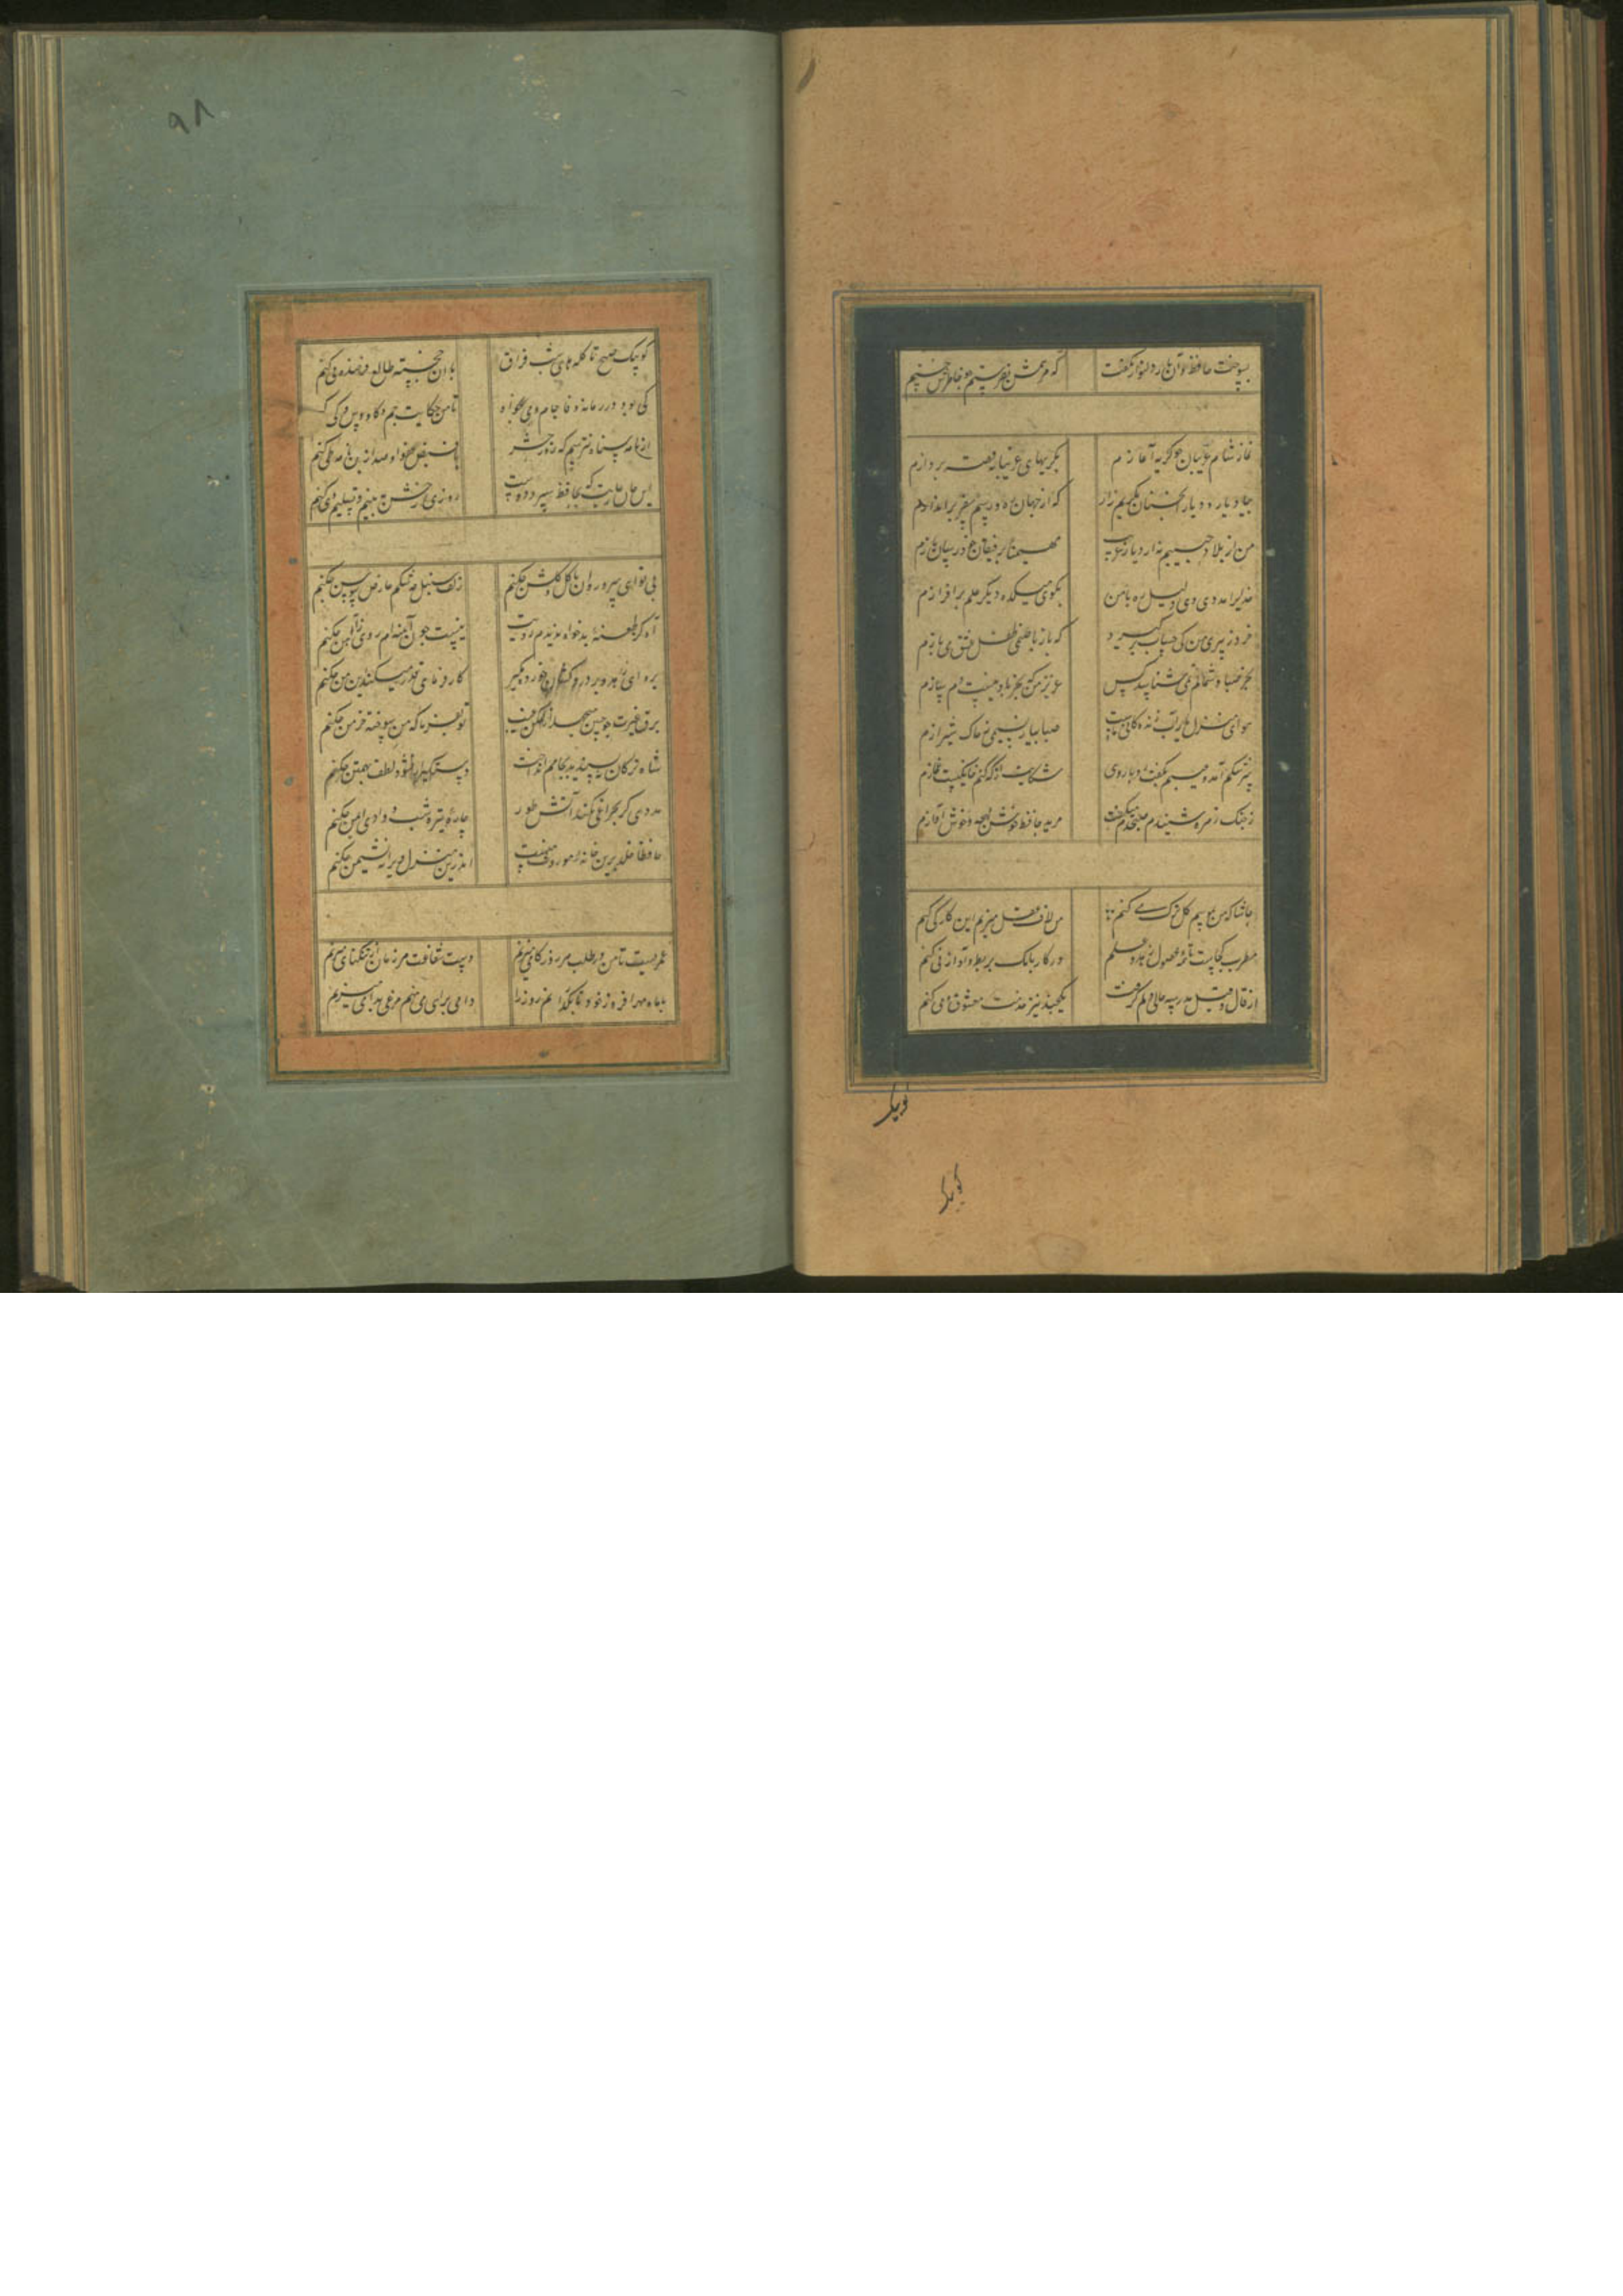 بسوخت حافظ و آن یار دلنواز نگفت که مرهمی بفرستیم چو خاطرش خستیم
نماز شام غریبان چو گریه آغازم بگریهای غریبانه قصه پردازم
بیاد یار و دیار آنچنان بگریم زار که از جهان ره و رسم سفر براندازم
من از بلاد حبیبم نه از دیار غریب مهیمنا برفیقان خود رسان بازم
خدایرا مددی ای دلیل ره تا من بکوی میکده دیگر علم برافرازم
خرد ز پیری من کی حساب برگیرد که باز با صنمی طفل عشق می بازم
بجز صبا و شمالم نمی شناسد کس عزیز من که بجز باد نیست دم سازم
هوای منزل یار آب زندگانی ماست صبا بیار نسیمی ز خاک شیرازم
سرشکم آمد و عیبم بگفت رویاروی شکایت از که کنم خانگیست غمازم
ز چنگ زهره شنیدم که صبحدم میگفت مرید حافظ خوش لهجه و خوش آوازم
حاشا که من بموسم گل ترک می کنم من لاف عقل میزنم این کار کی کنم
مطرب کجاست تا همه محصول زهد و علم در کار بانگ بربط و آواز نی کنم
از قال و قیل مدرسه حالی دلم گرفت یکچند نیز خدمت معشوق و می کنم
کو پیک
کو پیک
۹۸
کو پیک صبح تا گله های شب فراق با آن خجسته طالع فرخنده پی کنم
کی بود در زمانه وفا جام می بخواه تا من حکایت جم و کاووس و کی کنم
از نامه سیاه نترسم که روز حشر با فیض لطف او صد ازین نامه طی کنم
این جان عاریت که بحافظ سپرد دوست روزی رخش ببینم و تسلیم وی کنم
بی تو ای سرو روان با گل و گلشن چکنم زلف سنبل چه کشم عارض سوسن چکنم
آه کز طعنه بدخواه ندیدم رویت نیست چون آینه ام روی ز آهن چکنم
برو ای زاهد و بر دردکشان خورده مگیر کارفرمای قدر میکند این من چکنم
برق غیرت چو چنین میجهد از مکمن غیب تو بفرما که من سوخته خرمن چکنم
شاه ترکان چو پسندید و بچاهم انداخت دستگیر ار نشود لطف تهمتن چکنم
مددی گر بچراغی نکند آتش طور چاره تیره شب وادی ایمن چکنم
حافظا خلد برین خانه موروث منست اندرین منزل ویرانه نشیمن چکنم
عمریست تا من در طلب هر روز گامی میزنم دست شفاعت هر زمان در نیکنامی میزنم
بی ماه مهر افروز خود تا بگذرانم روز را دامی براهی می نهم مرغی بدامی میزنم